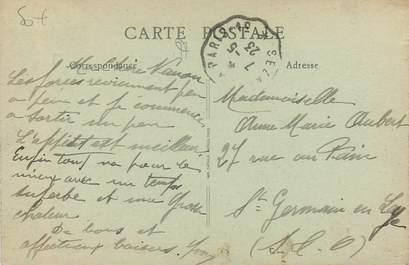 CARTE POSTALE
Correspondance
Adresse
Ma chère
Les forces reviennent peu
à peu et je commence
à sortir un peu
L'appétit est meilleur
Enfin tout va pour le
mieux avec un temps
superbe et une grosse
chaleur
De bons et
affectueux baisers.
Mademoiselle
Anne Marie Aubert
27 rue au Pain
St Germain en Laye
(S. & O)